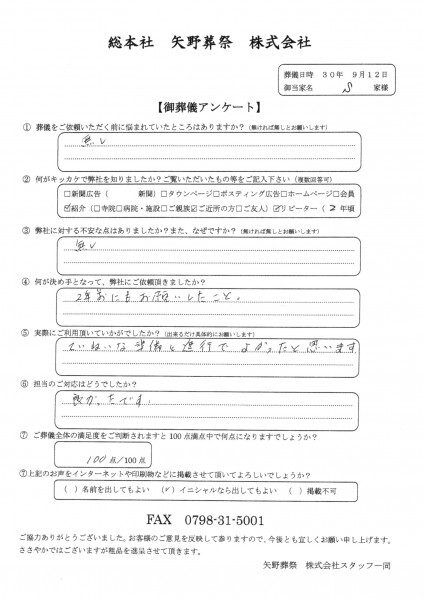 総本社　矢野葬祭　株式会社
葬儀日時　３０年　９月１２日
御当家名　S　家様
【御葬儀アンケート】
① 葬儀をご依頼いただく前に悩まれていたところはありますか？（無ければ無しとお願いします）
無し
② 何がキッカケで弊社を知りましたか？ご覧いただいたもの等をご記入下さい（複数回答可）
□新聞広告（　　　新聞）□タウンページ□ポスティング広告□ホームページ□会員
☑紹介（□寺院□病院・施設□ご親族□ご近所の方□ご友人）☑リピーター（２年頃
③ 弊社に対する不安な点はありましたか？また、なぜですか？（無ければ無しとお願いします）
無し
④ 何が決め手となって、弊社にご依頼頂きましたか？
2年前にもお願いしたこと。
⑤ 実際にご利用頂いていかがでしたか？（出来るだけ具体的にお願いします）
ていねいな準備と進行でよかったと思います
⑥ 担当のご対応はどうでしたか？
良かったです。
⑦ ご葬儀全体の満足度をご判断されますと100点満点中で何点になりますでしょうか？
100点/100点
⑦上記のお声をインターネットや印刷物などに掲載させて頂いてよろしいでしょうか？
（　）名前を出してもよい　（✓）イニシャルなら出してもよい　（　）掲載不可
FAX　0798-31-5001
ご協力ありがとうございました。お客様のご意見を反映して参りますので、今後とも宜しくお願い申し上げます。
ささやかではございますが粗品を進呈させて頂きます。
矢野葬祭　株式会社スタッフ一同